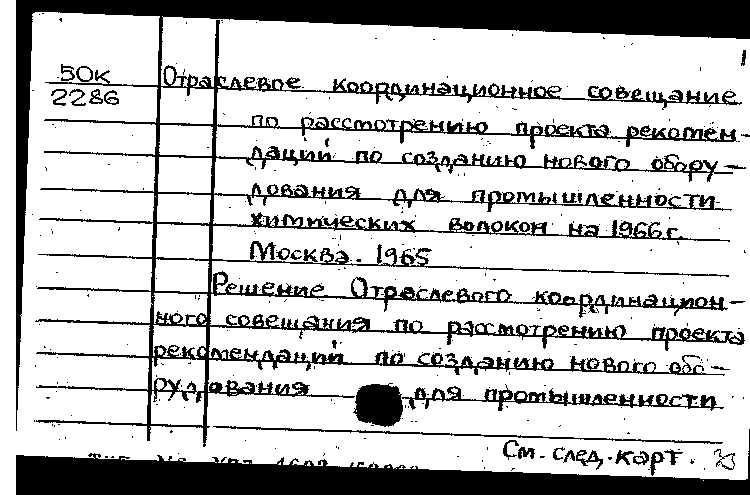 1
50к Отраслевое координационное совещание
2286
по рассмотрению проекта рекомен-
даций по созданию нового обору-
дования для промышленности
химических волокон на 1966г.
Москва. 1965
Решение Отраслевого координацион-
ного совещания по рассмотрению проекта
рекомендаций по созданию нового обо-
рудования для промышленности
См. след. карт.